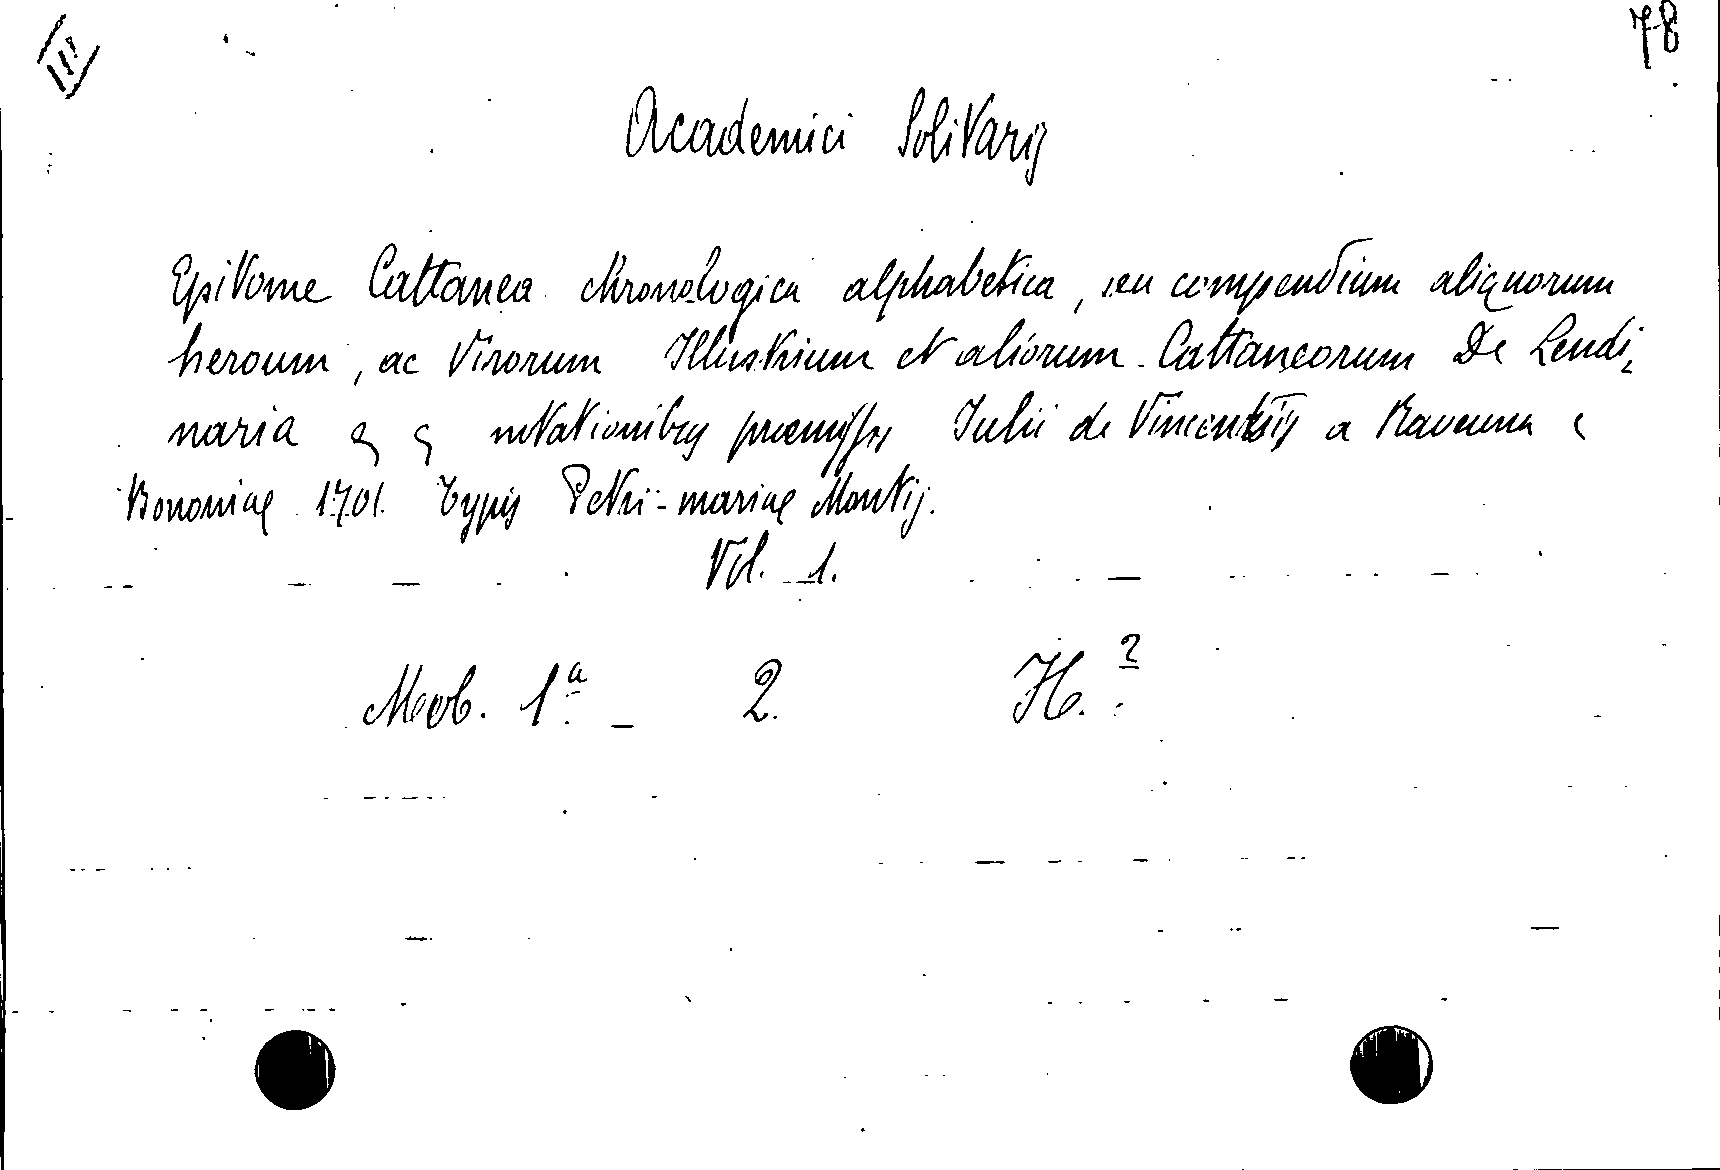 III
78
Academici Solitarij
Epitome Cattanea chronologica alphabetica, seu compendium aliquorum
heroum, ac Virorum Illustrium et aliorum Cattaneorum De Lendi,
naria & & notationibus præmissis Iulii de Vincentijs a Ravenna
Bononiae 1701. Typis Petri-mariae Montij.
Vol. 1.
Mob. 1ª. - 2. H.